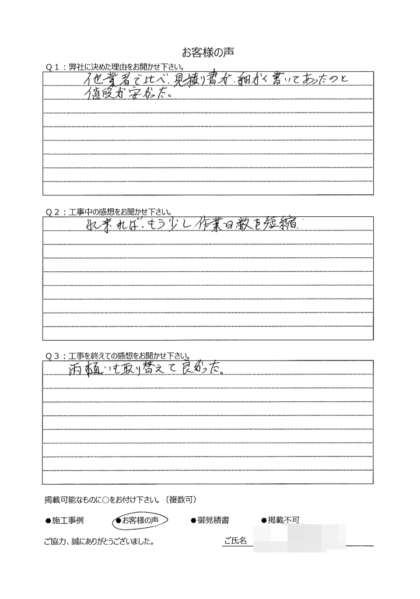 お客様の声
Q1:弊社に決めた理由をお聞かせ下さい。
他業者で比べ、見積り書が、細かく書いてあったのと
値段が安かった。
Q2:工事中の感想をお聞かせ下さい。
出来れば、もう少し作業日数を短縮
Q3:工事を終えての感想をお聞かせ下さい。
雨樋いも取り替えて良かった。
掲載可能なものに○をお付け下さい。(複数可)
●施工事例 ●お客様の声 ●御見積書 ●掲載不可
ご協力、誠にありがとうございました。 ご氏名